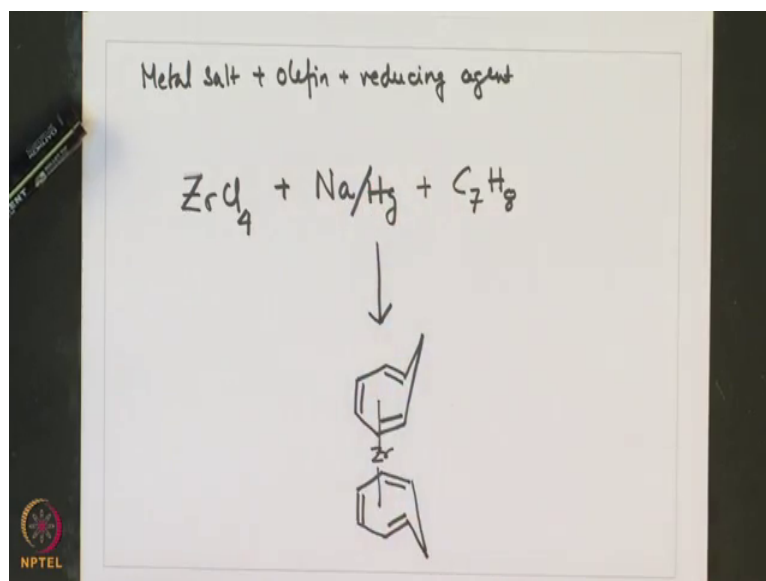 Metal salt + olefin + reducing agent
ZrCl4 + Na/Hg + C7H8
Zr
NPTEL